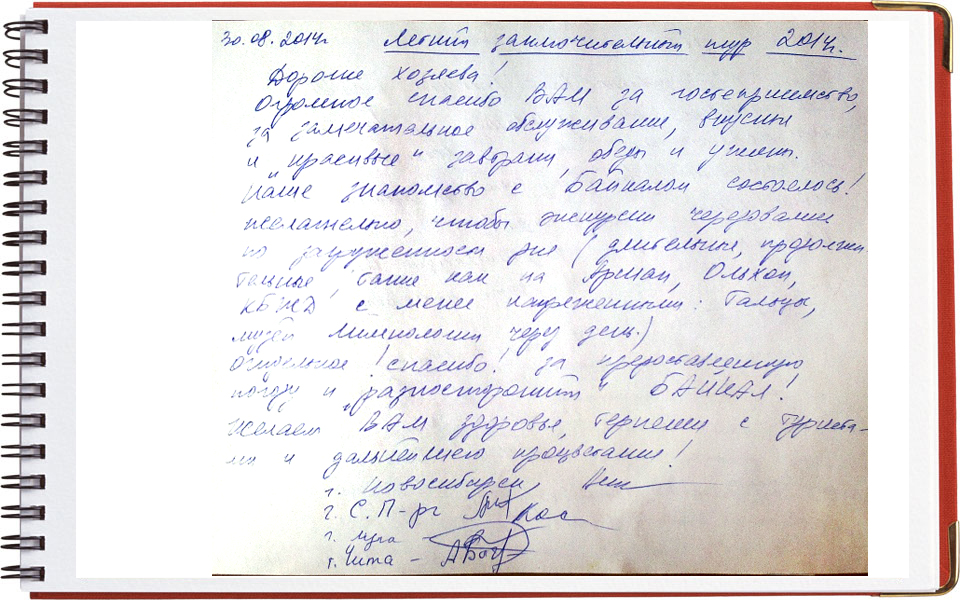 30.08.2014г Летний заключительный тур 2014г.
Дорогие хозяева!
Огромное спасибо ВАМ за гостеприимство,
за замечательное обслуживание, вкусные
и "красивые" завтраки, обеды и ужины.
Наше знакомство с Байкалом состоялось!
Желательно, чтобы экскурсии чередовались
по загруженности дня (длительные, продолжи
тельные, такие как на Аршан, Ольхон,
КБЖД с менее напряженными: Тальцы,
музей Лимнологии через день.)
Отдельное! спасибо! за предоставленную
погоду и "разносторонний" БАЙКАЛ!
Желаем ВАМ здоровья, терпения с туриста-
ми и дальнейшего процветания!
г. Новосибирск
г. С.П-рг
г.
г. Чита -